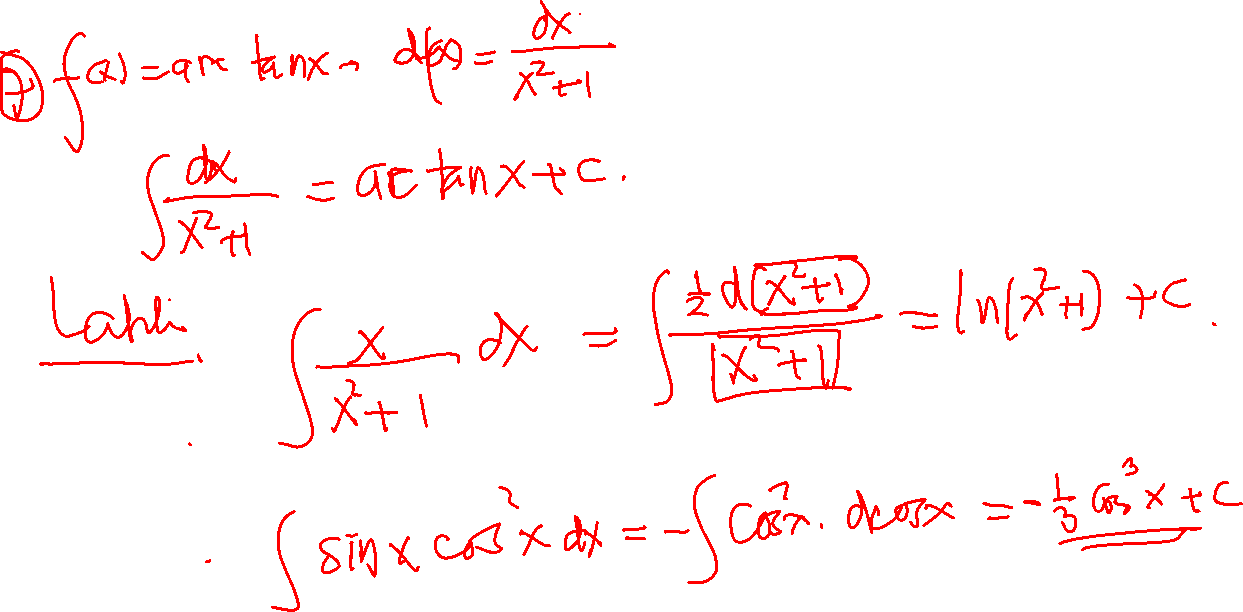 ⑦ f(x) = arc tan x → df(x) = dx/(x²+1)
∫ dx/(x²+1) = arc tan x + c.
Latih.
∫ x/(x²+1) dx = ∫ ½ d(x²+1)/(x²+1) = ln(x²+1) + c.
. ∫ sin x cos² x dx = -∫ cos² x. d cos x = -⅓ cos³ x + c